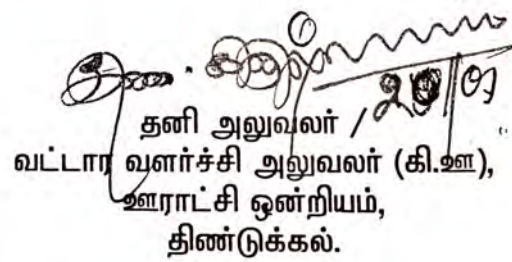 தனி அலுவலர் /
வட்டார வளர்ச்சி அலுவலர் (கி.ஊ),
ஊராட்சி ஒன்றியம்,
திண்டுக்கல்.